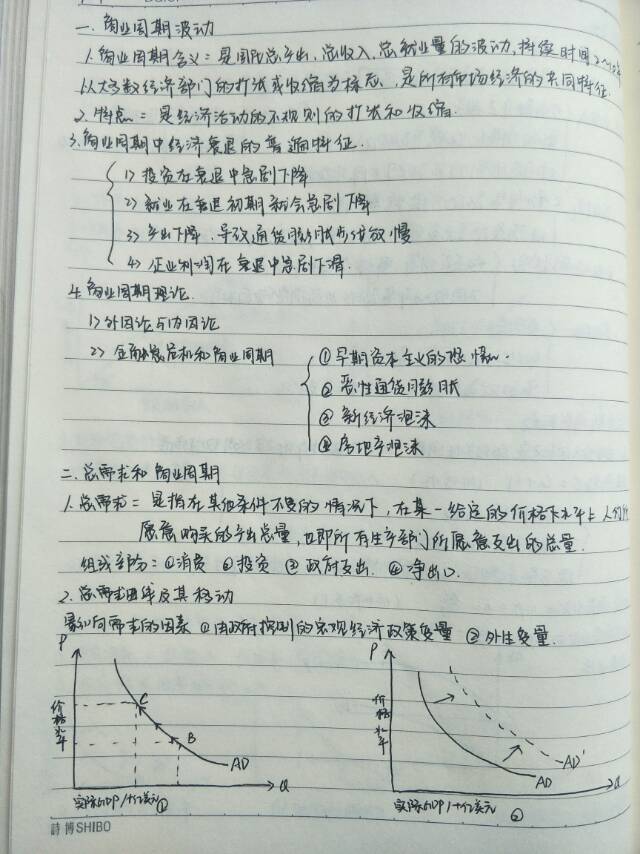 一. 商业周期波动
1. 商业周期含义: 是国民总产出、总收入、总就业量的波动, 持续时间2～10年
以大多数经济部门的扩张或收缩为标志, 是所有市场经济的共同特征.
2. 特点: 是经济活动的不规则的扩张和收缩.
3. 商业周期中经济衰退的普遍特征.
1) 投资在衰退中急剧下降
2) 就业在衰退初期就会急剧下降
3) 产出下降, 导致通货膨胀步伐放慢
4) 企业利润在衰退中急剧下滑.
4. 商业周期理论.
1) 外因论与内因论
2) 金融危机和商业周期
① 早期资本主义的恐慌.
② 恶性通货膨胀
③ 新经济泡沫
④ 房地产泡沫
二. 总需求和商业周期
1. 总需求: 是指在其他条件不变的情况下, 在某一给定的价格水平上人们
愿意购买的产出总量, 也即所有生产部门所愿意支出的总量.
组成部分: ①消费 ②投资 ③政府支出. ④净出口.
2. 总需求曲线及其移动
影响需求的因素 ①由政府控制的宏观经济政策变量 ②外生变量.
P
价格水平
C
B
AD
Q
实际GDP/十亿美元 ①
P
价格水平
AD'
AD
Q
实际GDP/十亿美元 ②
時博SHIBO